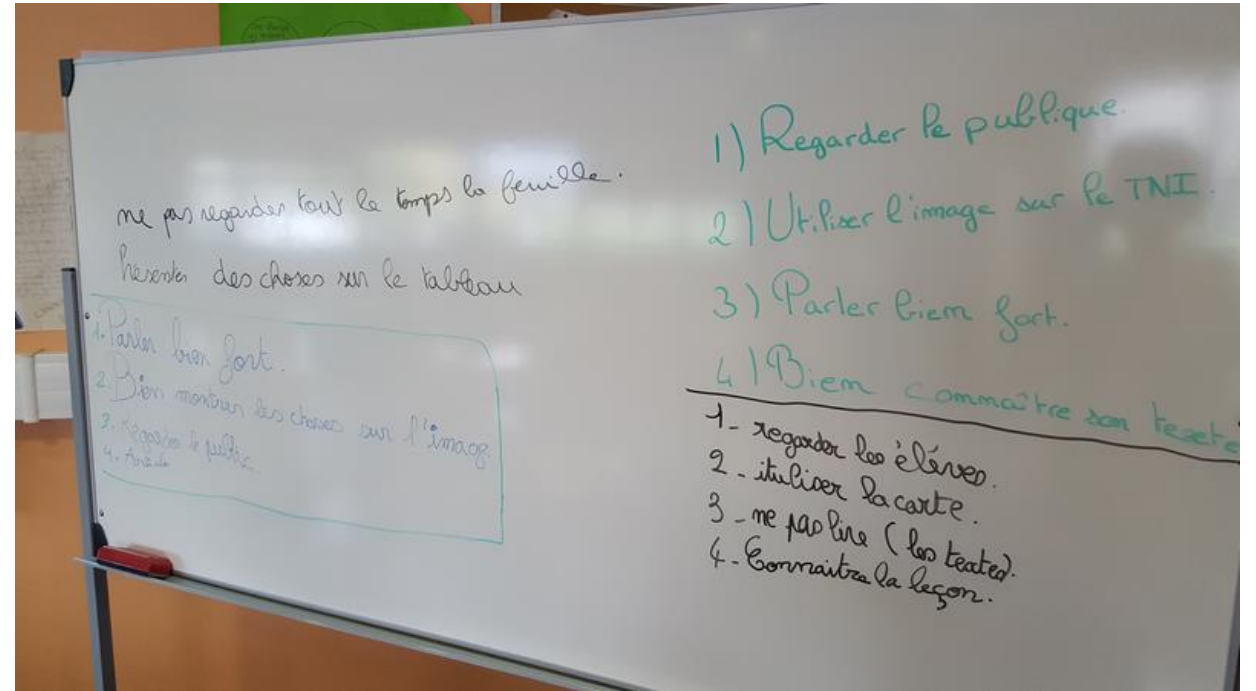 ne pas regarder tout le temps la feuille.
Presenter des choses sur le tableau
1. Parler bien fort.
2. Bien montrer les choses sur l'image.
3. Regarder le public.
4.
1) Regarder le publique.
2) Utiliser l'image sur le TNI.
3) Parler bien fort.
4) Bien connaître son texte
1- regarder les élèves.
2- ituliser la carte.
3- ne pas lire (les textes).
4- Connaitre la leçon.